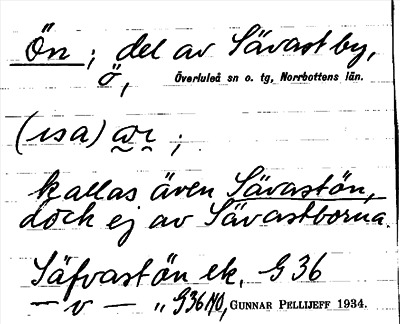 Ön ; del av Sävast by,
ö, Överluleå sn o. tg, Norrbottens län.
(isa)
kallas även Sävastön,
dock ej av Sävastborna.
Säfvast ön ek. G 36
— v — " G36NO, GUNNAR PELLIJEFF 1934.